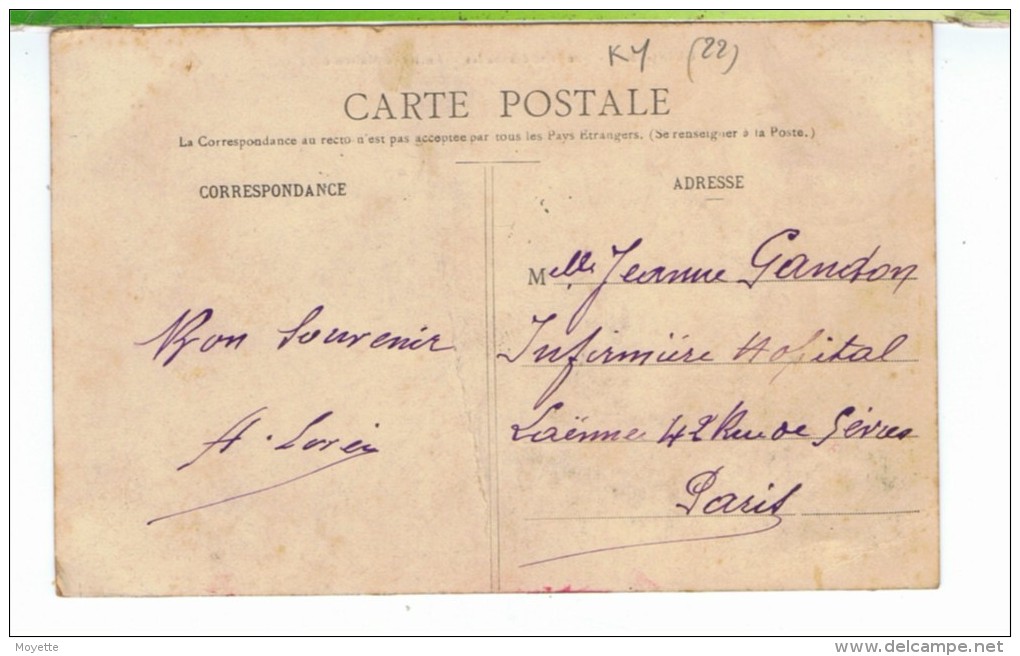 KY (22)
CARTE POSTALE
La Correspondance au recto n'est pas acceptée par tous les Pays Etrangers. (Se renseigner à la Poste.)
CORRESPONDANCE
Bon Souvenir
A. Loréi
ADRESSE
Melle Jeanne Gandon
Infirmiére Hopital
Laënnec 42 Rue de Sévres
Paris
Moyette
www.delcampe.net